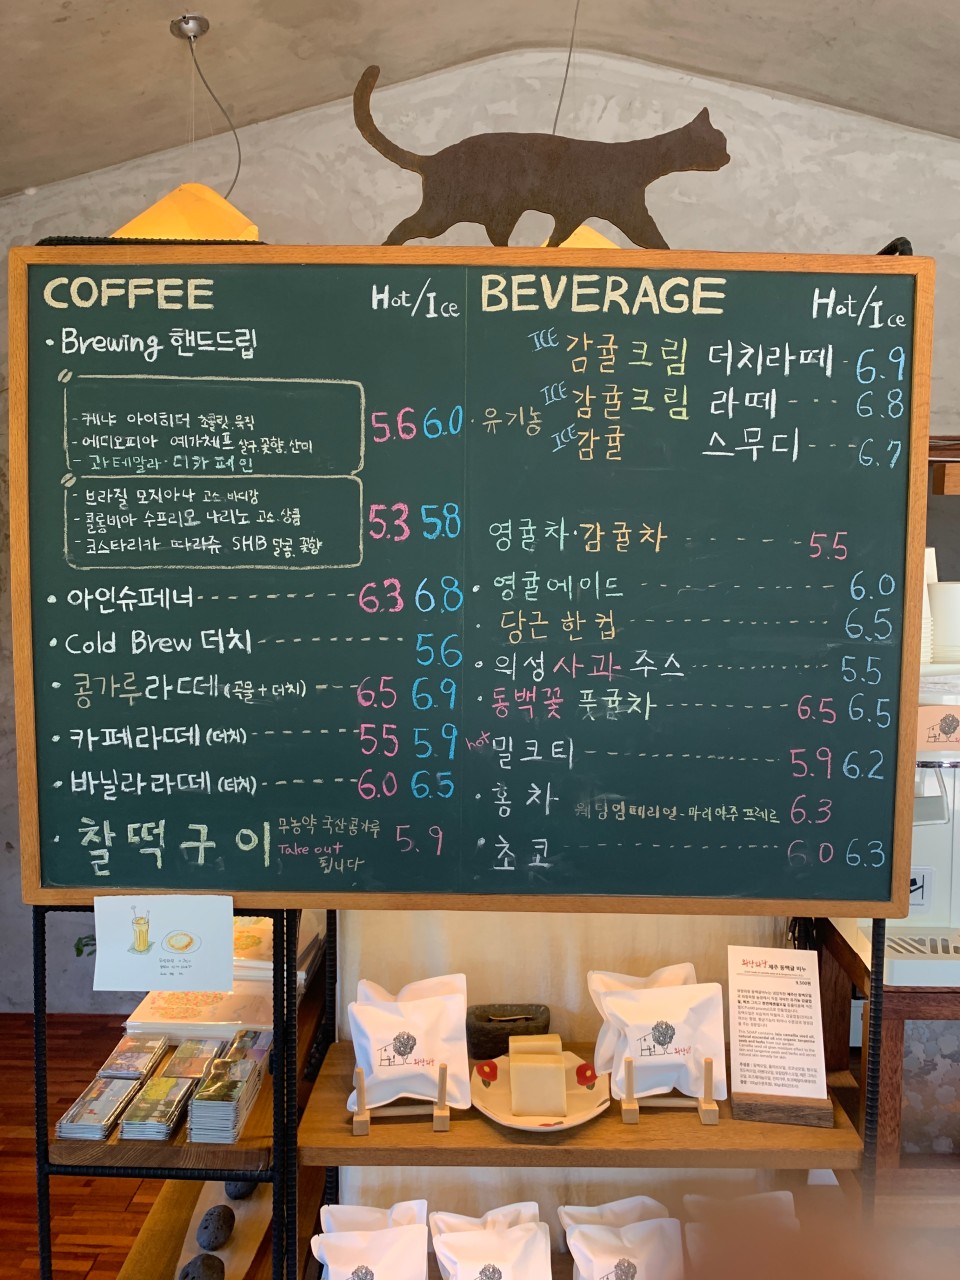 COFFEE Hot/Ice
• Brewing 핸드드립
- 케냐 아이히더 초콜릿, 묵직
- 에디오피아 예가체프 살구, 꽃향, 산미
- 과테말라·디카페인
5.6 6.0
- 브라질 모지아나 고소, 바디강
- 콜롬비아 수프리모 나리뇨 고소, 상큼
- 코스타리카 따라쥬 SHB 달콤, 꽃향
5.3 5.8
• 아인슈페너 6.3 6.8
• Cold Brew 더치 5.6
• 콩가루라떼 (곡물+더치) 6.5 6.9
• 카페라떼 (더치) 5.5 5.9
• 바닐라라떼 (더치) 6.0 6.5
• 찰떡구이 무농약 국산콩가루 5.9
Take out
됩니다
BEVERAGE Hot/Ice
ICE 감귤크림 더치라떼 6.9
• 유기농 ICE 감귤크림 라떼 6.8
ICE 감귤 스무디 6.7
영귤차·감귤차 5.5
• 영귤에이드 6.0
• 당근한컵 6.5
• 의성사과주스 5.5
• 동백꽃 풋귤차 6.5 6.5
hot 밀크티 5.9 6.2
• 홍차 웨딩임페리얼-마리아주프레르 6.3
• 초코 6.0 6.3
제주 동백귤 비누
9,500원